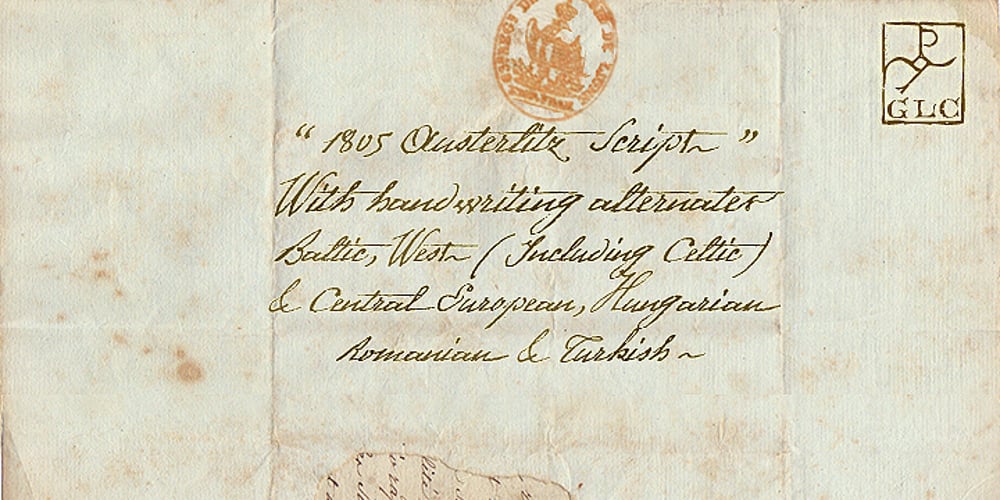 P
GLC
“ 1805 Austerlitz Script ”
With handwriting alternates
Baltic, West (Including Celtic)
& Central European, Hungarian
Romanian & Turkish ~